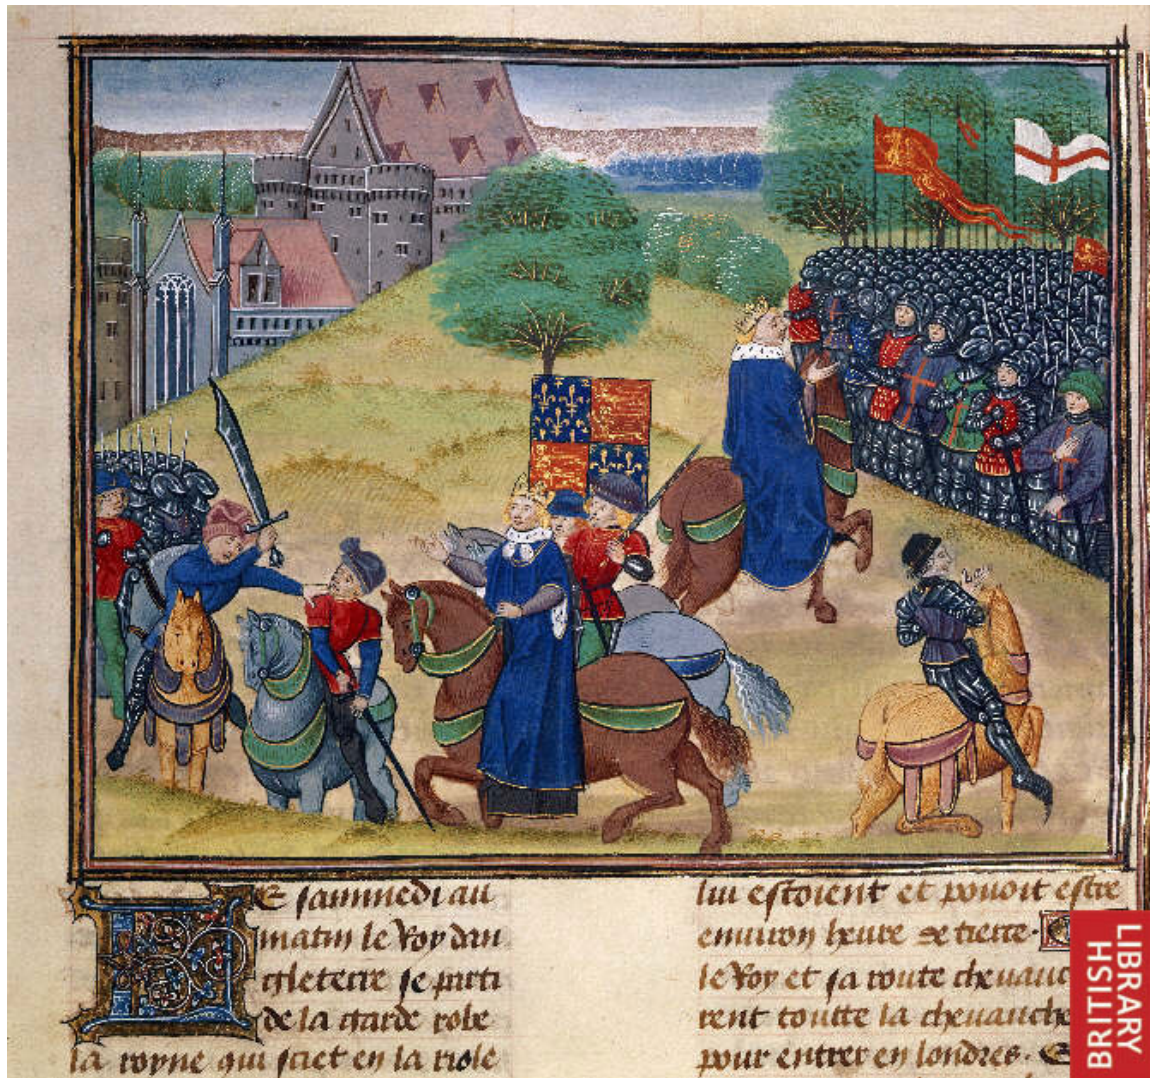 LE sammedi au
matin le Roy dan
gleterre se parti
de la garde robe
la royne qui siet en la riole
lui estoient et pouoit estre
enuiron heure de tierce.
le Roy et sa route cheuauc
rent toutte la cheuauche
pour entrer en londres. E
BRITISH
LIBRARY